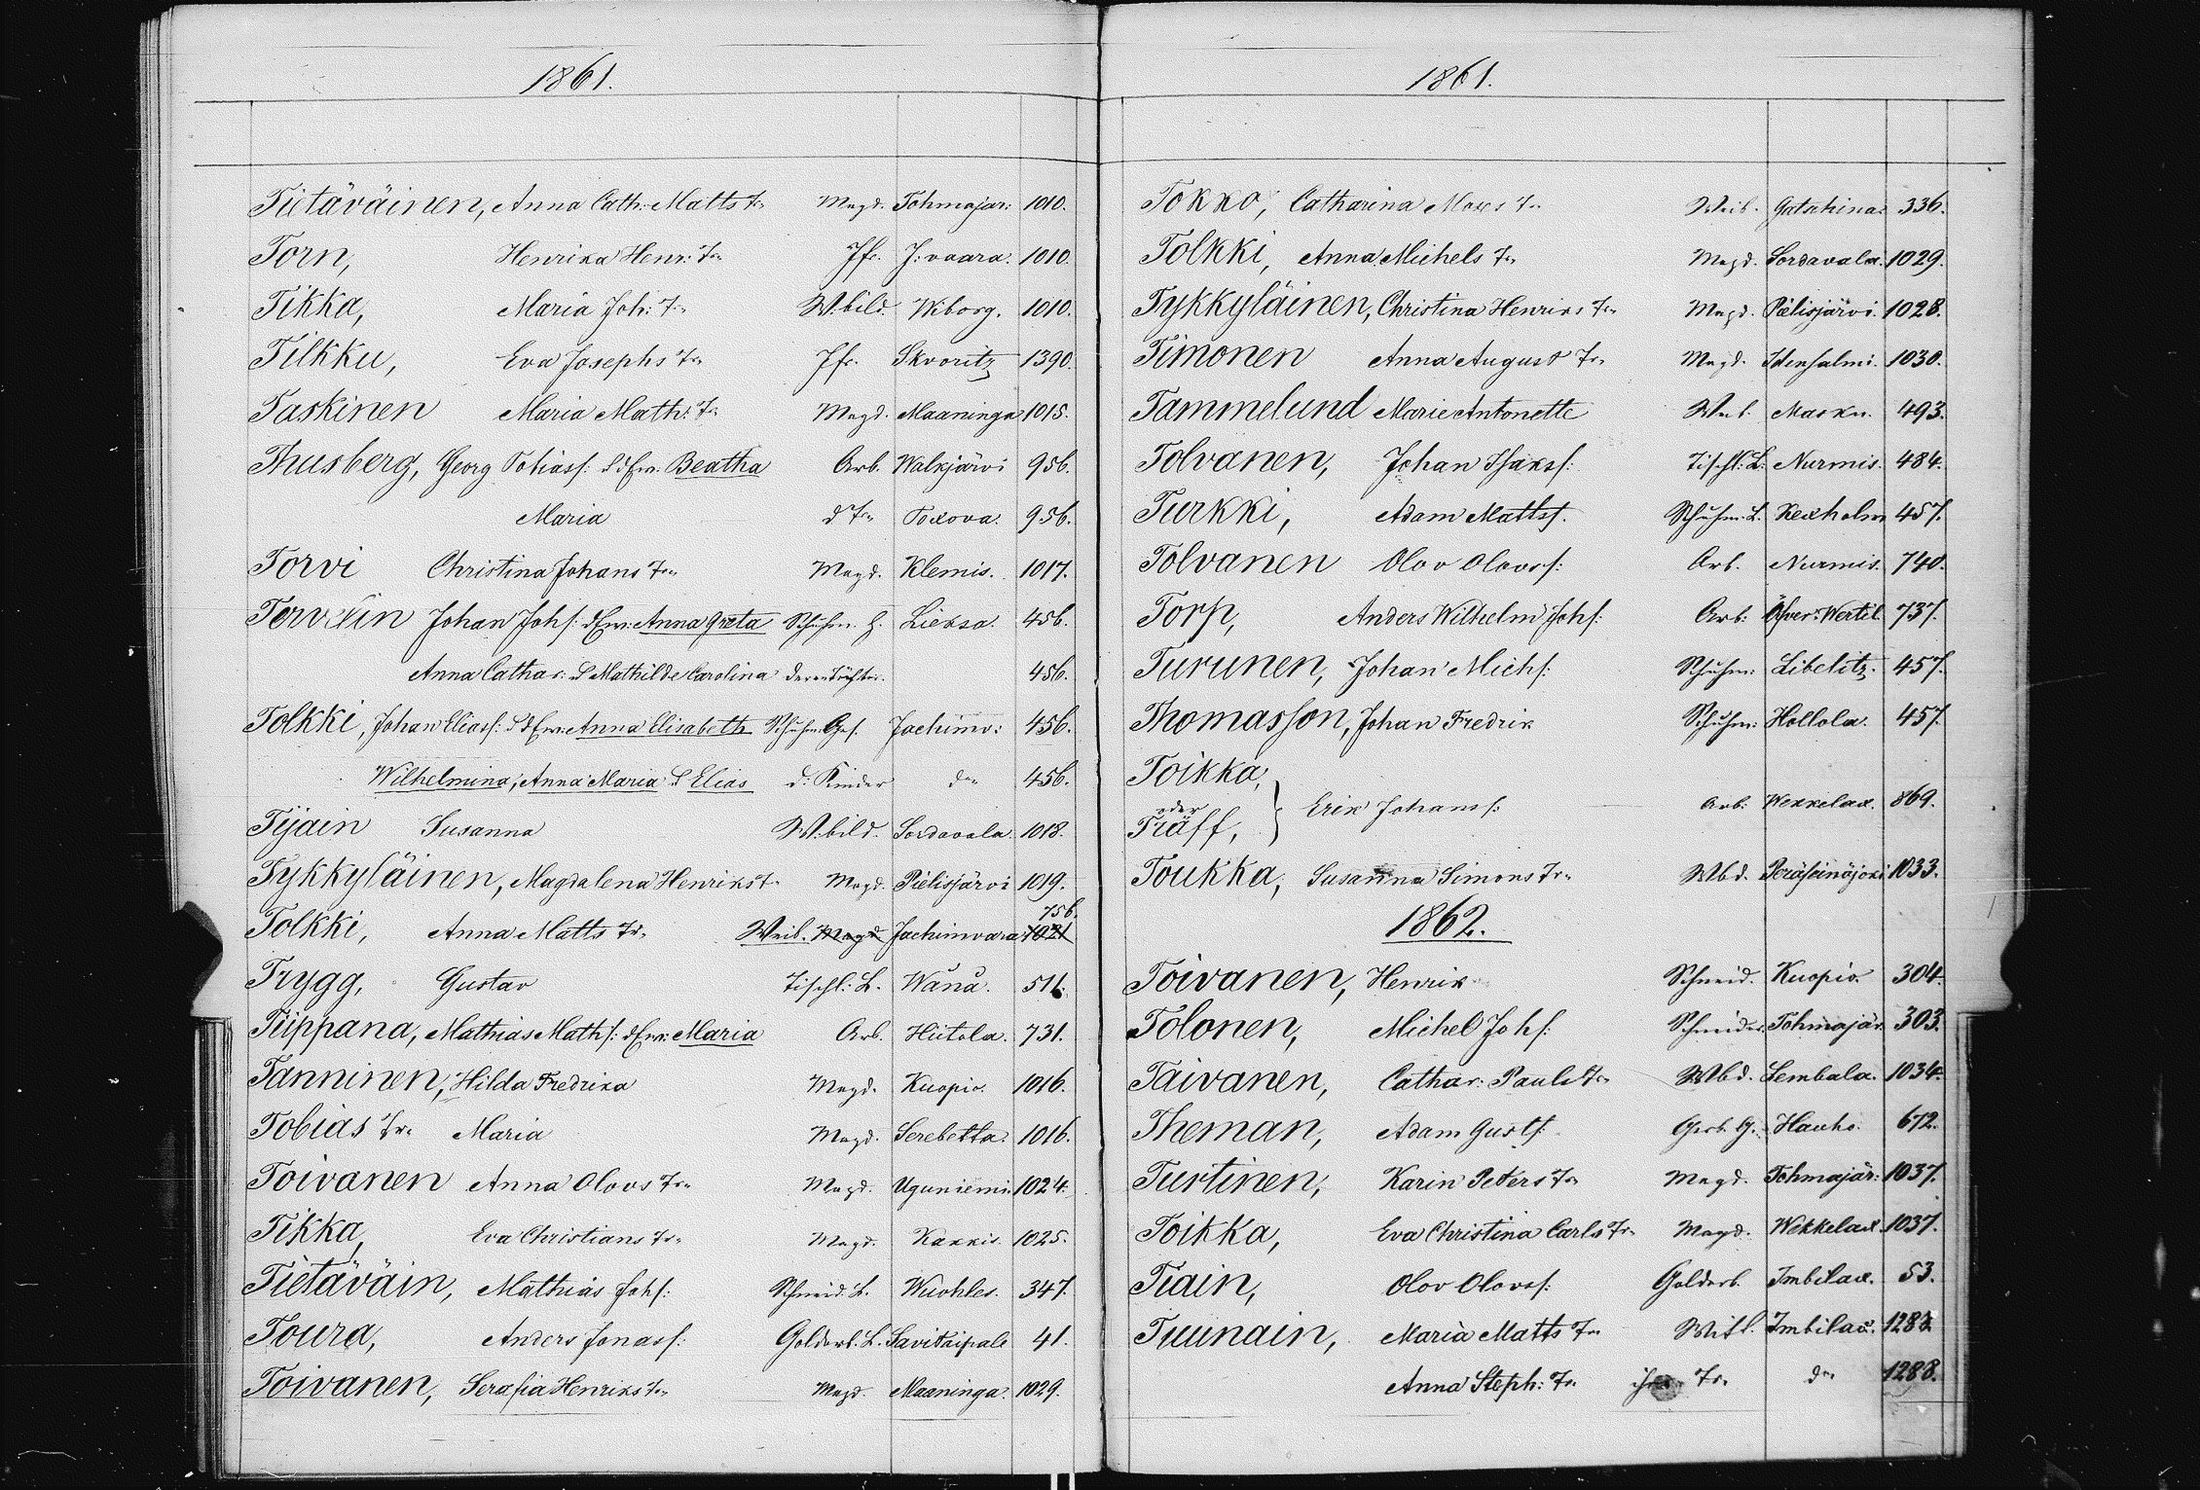 1861.
Tietäväinen, Anna Cath: Matts Tr Magd. Tohmajär: 1010.
Torn, Henrika Henr: Tr Jfr. J: vaara. 1010.
Tikka, Maria Joh: Tr W.bild. Wiborg. 1010.
Tilkku, Eva Josephs Tr Jfr. Skvoritz 1390.
Taskinen Maria Math: Tr Magd. Maaninga 1015.
Thusberg, Georg Tobiass: & d Frn: Beatha Arb. Walkjärvi 956.
Maria d Tr Toxova. 956.
Torvi Christina Johans Tr Magd. Klemis. 1017.
Tervelin Johan Johs: d Frn: Anna Greta Schuhm. G. Lieksa. 456.
Anna Cathar: & Mathilde Carolina deren Töchter. 456.
Tolkki, Johan Eliass: & d Frn: Anna Elisabeth Schuhm: Ges. Jachimv: 456.
Wilhelmina, Anna Maria & Elias d: Kinder do 456.
Tijain Susanna W:bild. Sordavala. 1018.
Tykkyläinen, Magdalena Henriks T. Magd. Pielisjärvi 1019.
756.
Tolkki, Anna Matts Tr. Weib. Magd Jachimvara 1021
Trygg, Gustav Tischl: L. Wånå. 511.
Tiippana, Mathias Maths: d Frn: Maria Arb. Hiitola. 731.
Tanninen, Hilda Fredrika Magd. Kuopio. 1016.
Tobias Tr. Maria Magd. Serebetta. 1016.
Toivanen Anna Olovs Tr Magd. Uguniemi. 1024.
Tikka, Eva Christians Tr. Magd. Kakkis. 1025.
Tietäväin, Mathias Johs: Schneid: L. Wuohles. 347.
Toura, Anders Jonass: Goldarb. L. Savitaipale 41.
Toivanen, Serafia Henriks Tr. Magd. Maaninga. 1029.
1861.
Tokko, Catharina Maxs T. Weib. Gatschina. 336.
Tolkki, Anna Michels Tr Magd. Sordavala. 1029.
Tykkyläinen, Christina Henriks Tr Magd. Pielisjärvi. 1028.
Timonen Anna August Tr. Magd. Idensalmi. 1030.
Tammelund Marie Antonette Weib. Masku. 493.
Tolvanen, Johan Isakss: Tischl: L. Nurmis. 484.
Turkki, Adam Mattss. Schuhm. L. Kexholm 457.
Tolvanen Olov Olovss: Arb. Nurmis. 740.
Torp, Anders Wilhelm Johs: Arb: Öfver: Wertil. 737.
Turunen, Johan Michs: Schuhm: Libelitz. 457.
Thomasson, Johan Fredrik Schuhm: Hollola. 457.
Toikka,
oder Erik Johanss: Arb: Wekkelax. 869.
Träff,
Toukka, Susanna Simons Tr. Wbd. Peräseinäjoki 1033.
1862.
Toivanen, Henrik Schneid. Kuopio. 304.
Tolonen, Michel Johs: Schneider Tohmajär. 303.
Taivanen, Cathar: Pauls Tr Wbd. Sembala. 1034.
Theman, Adam Gusts: Gerb. G. Hauho. 672.
Turtinen, Karin Peters Tr Magd. Tohmajär: 1037.
Toikka, Eva Christina Carls Tr. Magd. Wekkelax. 1037.
Tiain, Olov Olovss: Goldarb. Imbilax. 53.
Tuunain, Maria Matts Tr Imbilax. 1288
Anna Steph: Tr. Tr. do 1288.